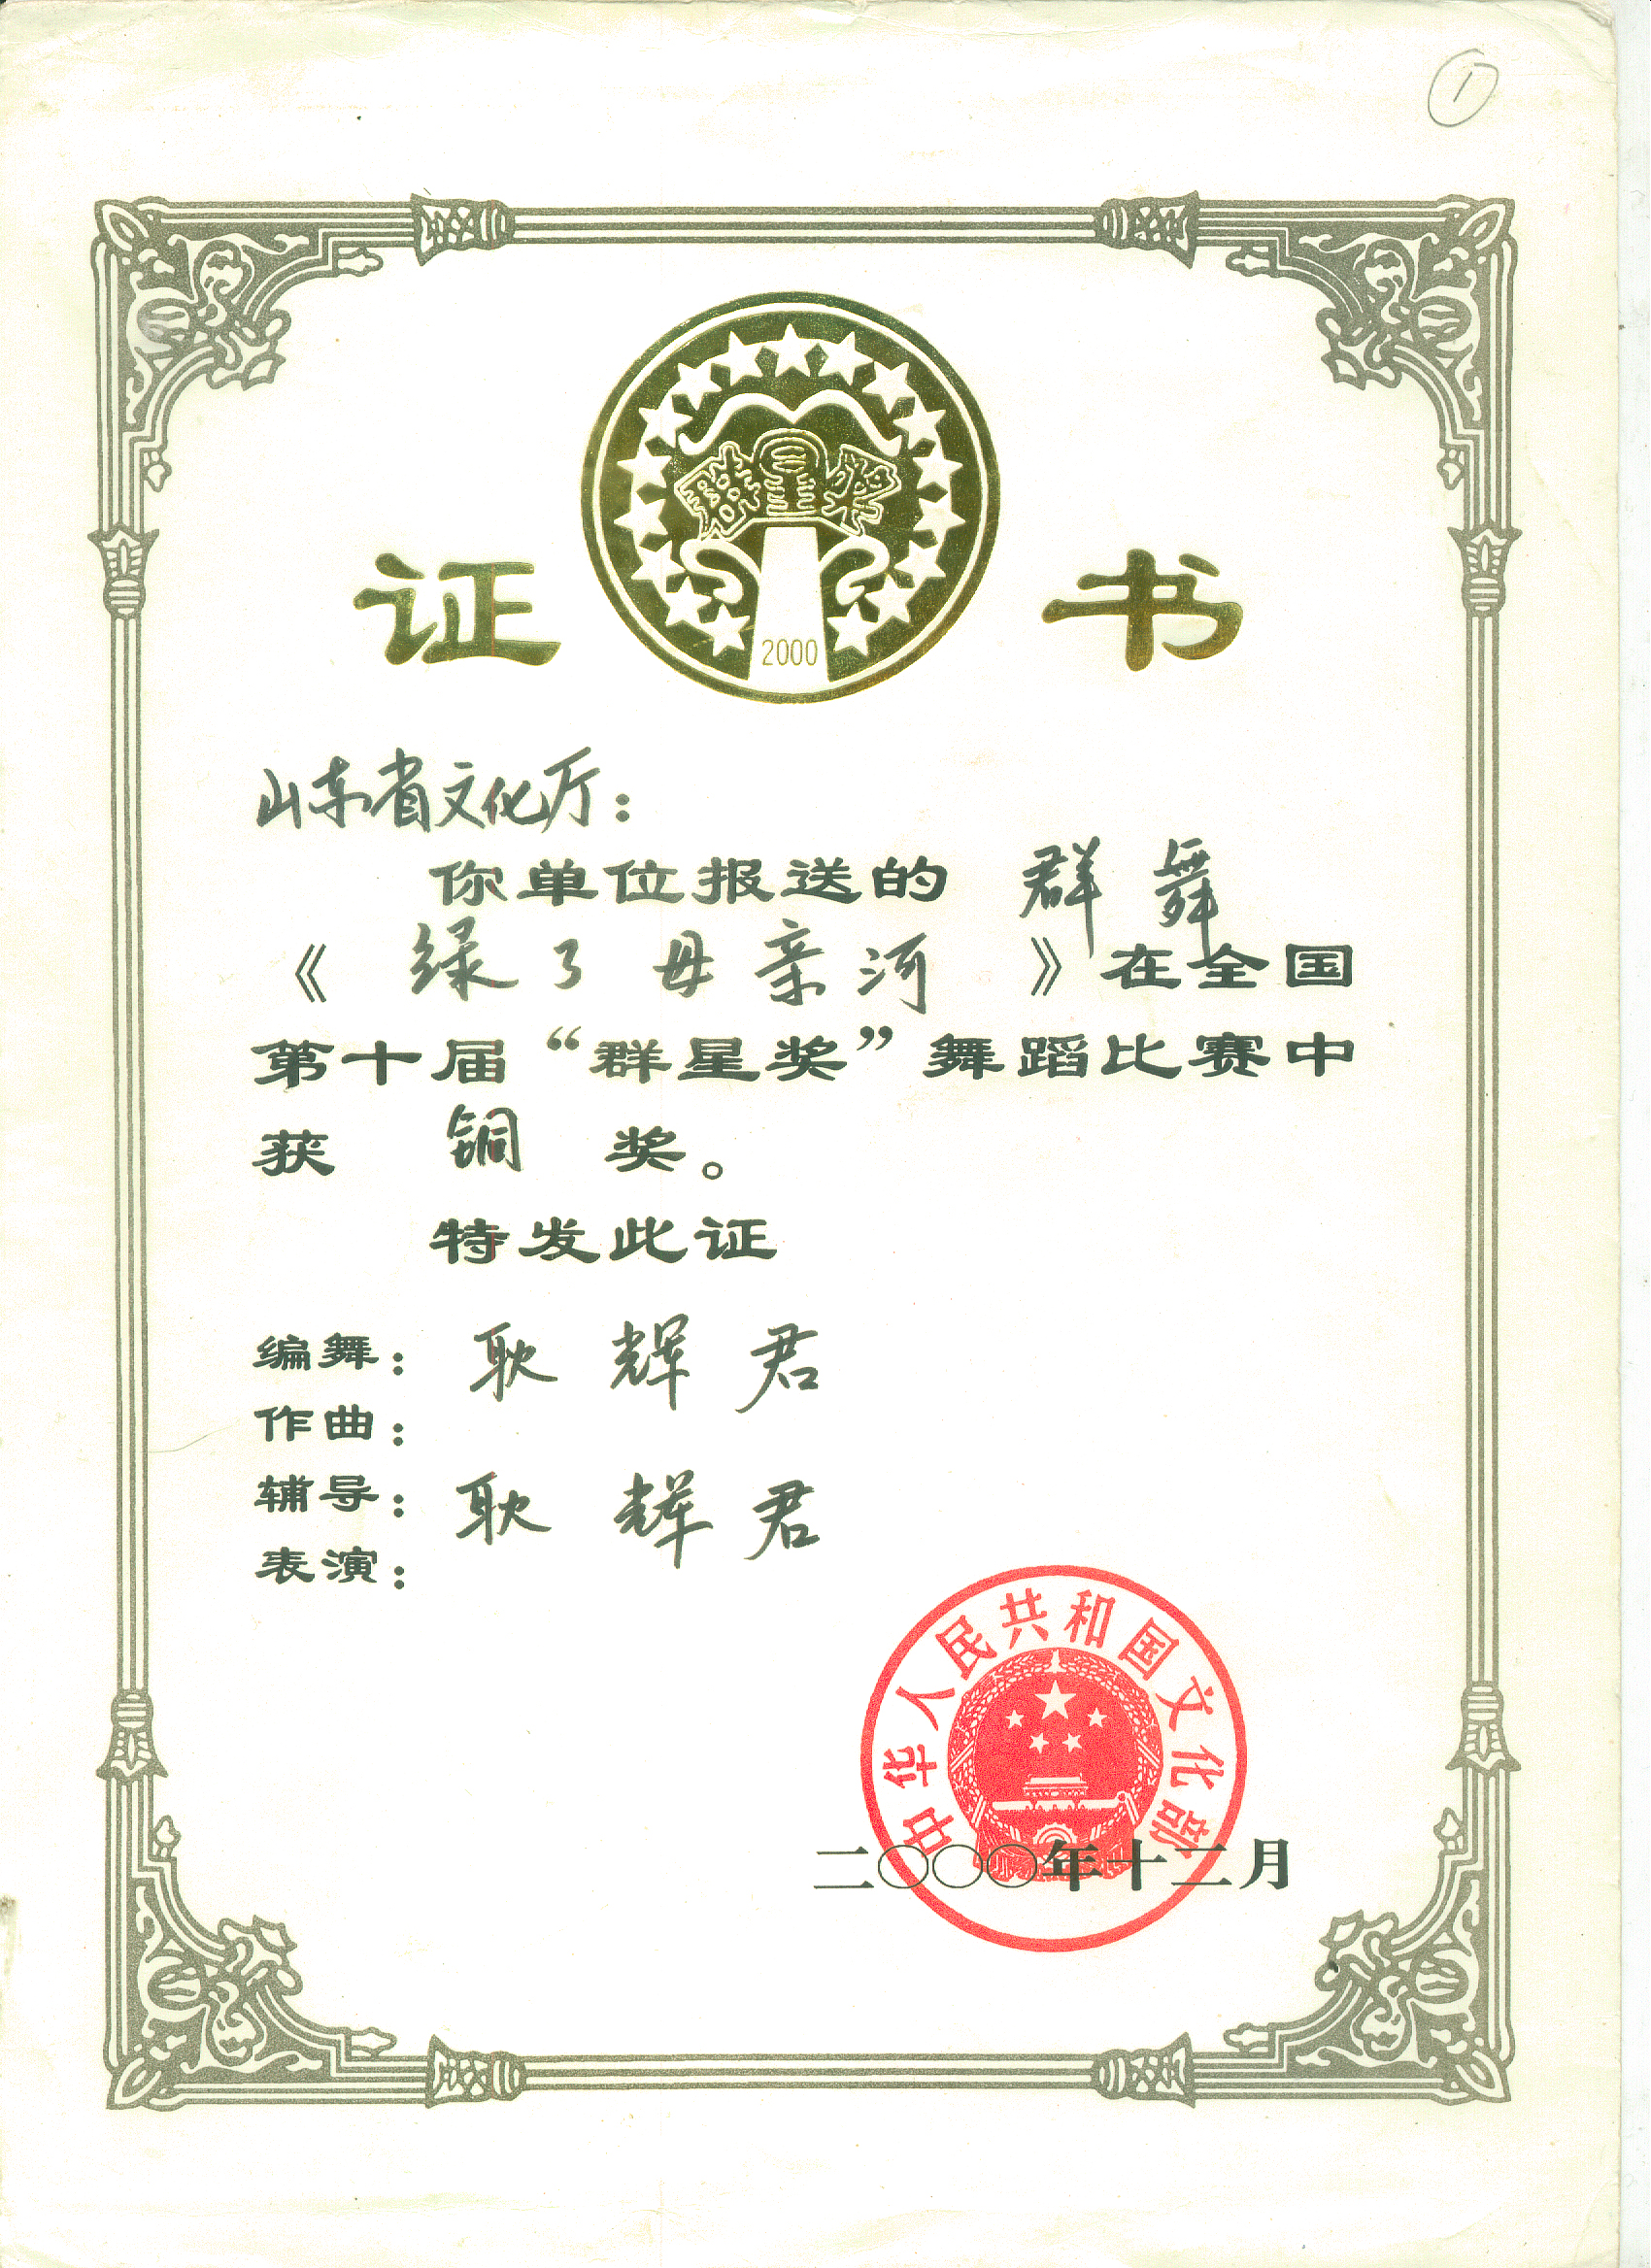 ①
群星奖
2000
证书
山东省文化厅：
你单位报送的 群舞
《绿了母亲河》在全国
第十届“群星奖”舞蹈比赛中
获 铜 奖。
特发此证
编舞：耿辉君
作曲：
辅导：耿辉君
表演：
中华人民共和国文化部
二〇〇〇年十二月